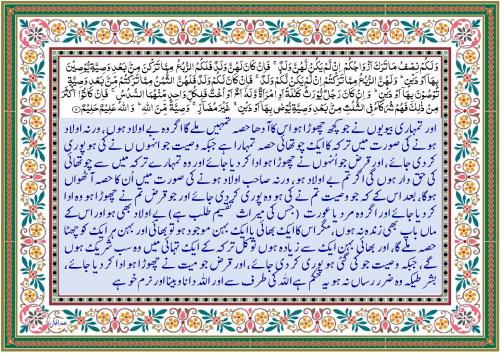 وَلَكُمْ نِصْفُ مَا تَرَكَ اَزْوَاجُكُمْ اِنْ لَّمْ يَكُنْ لَّهُنَّ وَلَدٌ ۚ فَاِنْ كَانَ لَهُنَّ وَلَدٌ فَلَكُمُ الرُّبُعُ مِمَّا تَرَكْنَ مِنْۢ بَعْدِ وَصِيَّةٍ يُّوْصِيْنَ
بِهَاۤ اَوْ دَيْنٍ ؕ وَلَهُنَّ الرُّبُعُ مِمَّا تَرَكْتُمْ اِنْ لَّمْ يَكُنْ لَّكُمْ وَلَدٌ ۚ فَاِنْ كَانَ لَكُمْ وَلَدٌ فَلَهُنَّ الثُّمُنُ مِمَّا تَرَكْتُمْ مِّنْۢ بَعْدِ وَصِيَّةٍ
تُوْصُوْنَ بِهَاۤ اَوْ دَيْنٍ ؕ وَاِنْ كَانَ رَجُلٌ يُّوْرَثُ كَلٰلَةً اَوِ امْرَاَةٌ وَّلَهٗۤ اَخٌ اَوْ اُخْتٌ فَلِكُلِّ وَاحِدٍ مِّنْهُمَا السُّدُسُ ۚ فَاِنْ كَانُوْۤا اَكْثَرَ
مِنْ ذٰلِكَ فَهُمْ شُرَكَآءُ فِى الثُّلُثِ مِنْۢ بَعْدِ وَصِيَّةٍ يُّوْصٰى بِهَاۤ اَوْ دَيْنٍ ۙ غَيْرَ مُضَآرٍّ ۚ وَصِيَّةً مِّنَ اللّٰهِ ؕ وَاللّٰهُ عَلِيْمٌ حَلِيْمٌ ؕ
اور تمہاری بیویوں نے جو کچھ چھوڑا ہو اس کا آدھا حصہ تمہیں ملے گا اگر وہ بے اولاد ہوں، ورنہ اولاد
ہونے کی صورت میں ترکہ کا ایک چوتھائی حصہ تمہارا ہے جبکہ وصیت جو انہوں نے کی ہو پوری
کر دی جائے، اور قرض جو اُنہوں نے چھوڑا ہو ادا کر دیا جائے اور وہ تمہارے ترکہ میں سے چوتھائی
کی حق دار ہوں گی اگر تم بے اولاد ہو، ورنہ صاحب اولاد ہونے کی صورت میں اُن کا حصہ آٹھواں
ہوگا، بعد اس کے کہ جو وصیت تم نے کی ہو وہ پوری کر دی جائے اور جو قرض تم نے چھوڑا ہو وہ ادا
کر دیا جائے اور اگر وہ مرد یا عورت (جس کی میراث تقسیم طلب ہے) بے اولاد بھی ہو اور اس کے
ماں باپ بھی زندہ نہ ہوں، مگر اس کا ایک بھائی یا ایک بہن موجود ہو تو بھائی اور بہن ہر ایک کو چھٹا
حصہ ملے گا، اور بھائی بہن ایک سے زیادہ ہوں تو کل ترکہ کے ایک تہائی میں وہ سب شریک ہوں
گے، جبکہ وصیت جو کی گئی ہو پوری کر دی جائے، اور قرض جو میت نے چھوڑا ہو ادا کر دیا جائے،
بشرطیکہ وہ ضرر رساں نہ ہو یہ حکم ہے اللہ کی طرف سے اور اللہ دانا و بینا اور نرم خو ہے